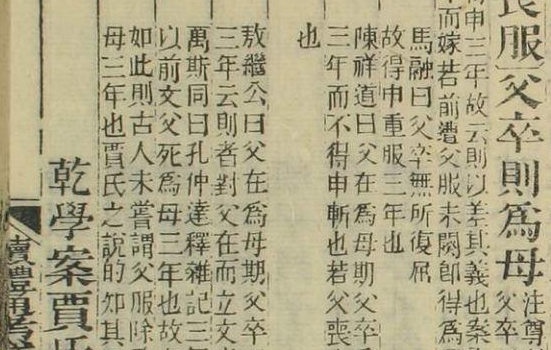 喪服父卒則爲母
注尊
父卒
得申三年故云則以差其義也案
而嫁若前遭父服未闋卽得爲
馬融曰父卒無所復屈
故得申重服三年也
陳祥道曰父在爲母期父卒
三年而不得申斬也若父喪
也
敖繼公曰父在爲母期父卒
三年云則者對父在而立文
萬斯同曰孔仲達釋雜記三
以前文父死爲母三年也故
如此則古人未嘗謂父服除
母三年也賈氏之說的知其
乾學案賈氏
讀禮通考